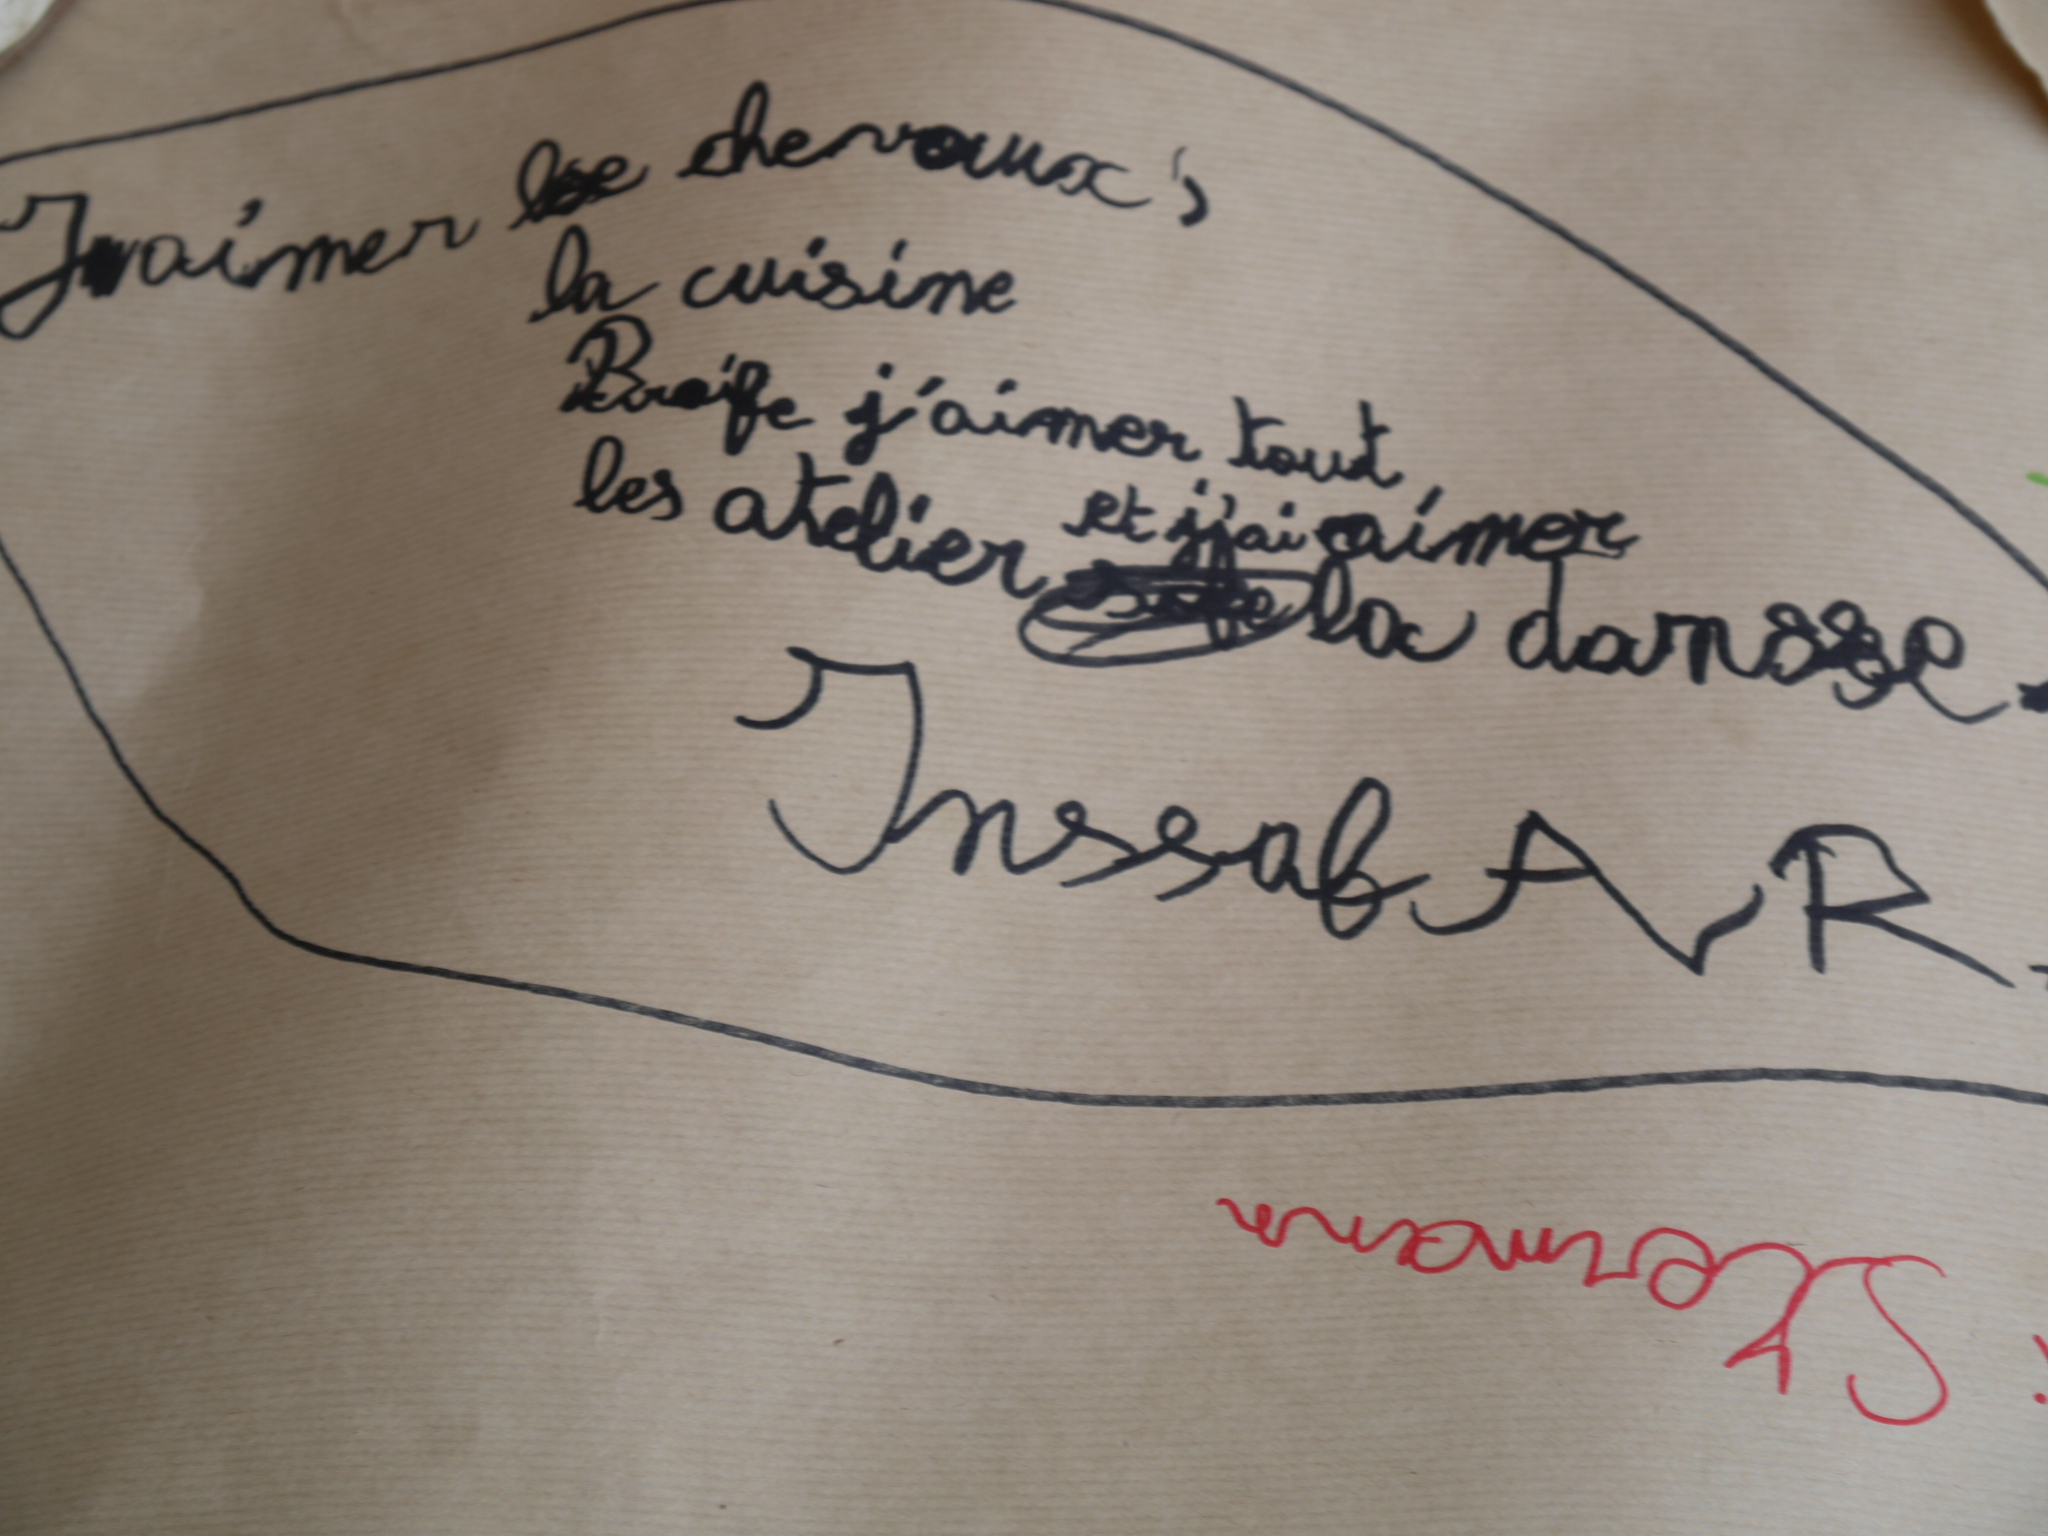 J'aimer le chevaux,
la cuisine
Breife j'aimer tout
les atelier et j'ai aimer
la dansse.
Inssaf A R